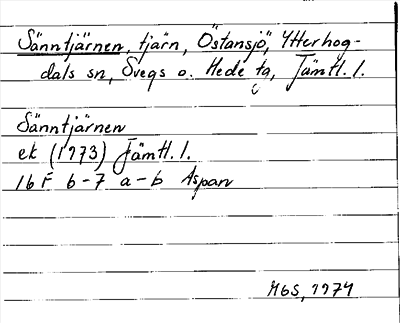 Sänntjärnen, tjärn, Östansjö, Ytterhog-
dals sn, Svegs o. Hede tg, Jämtl. l.
Sänntjärnen
ek (1973) Jämtl. l.
16 F 6-7 a-b Aspan
MGS, 1974